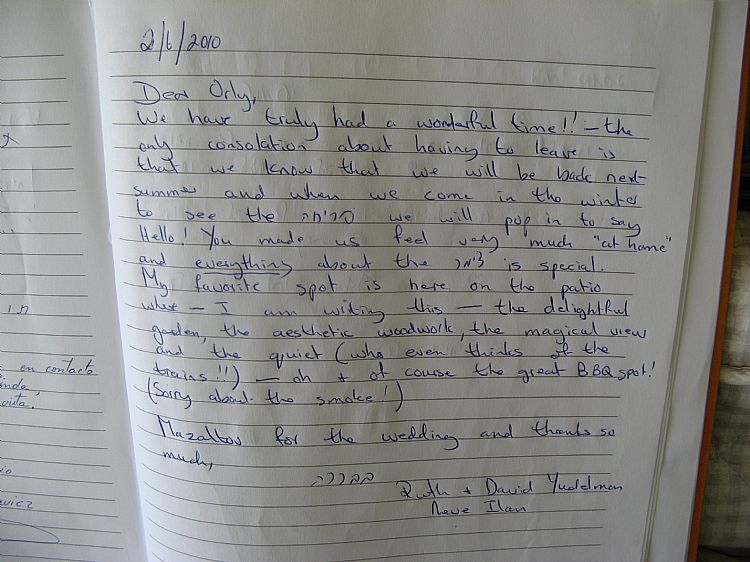 2/6/2010
Dear Orly,
We have truly had a wonderful time!! – the
only consolation about having to leave is
that we know that we will be back next
summer and when we come in the winter
to see the פריחה we will pop in to say
Hello! You made us feel very much "at home"
and everything about the צימר is special.
My favorite spot is here on the patio
where – I am writing this – the delightful
garden, the aesthetic woodwork, the magical view
and the quiet (who even thinks of the
trains!!) – oh + of course the great BBQ spot!
(Sorry about the smoke!)
Mazaltov for the wedding and thanks so
much,
בברכה
Ruth + David Yudelman
Neve Ilan
en contacto